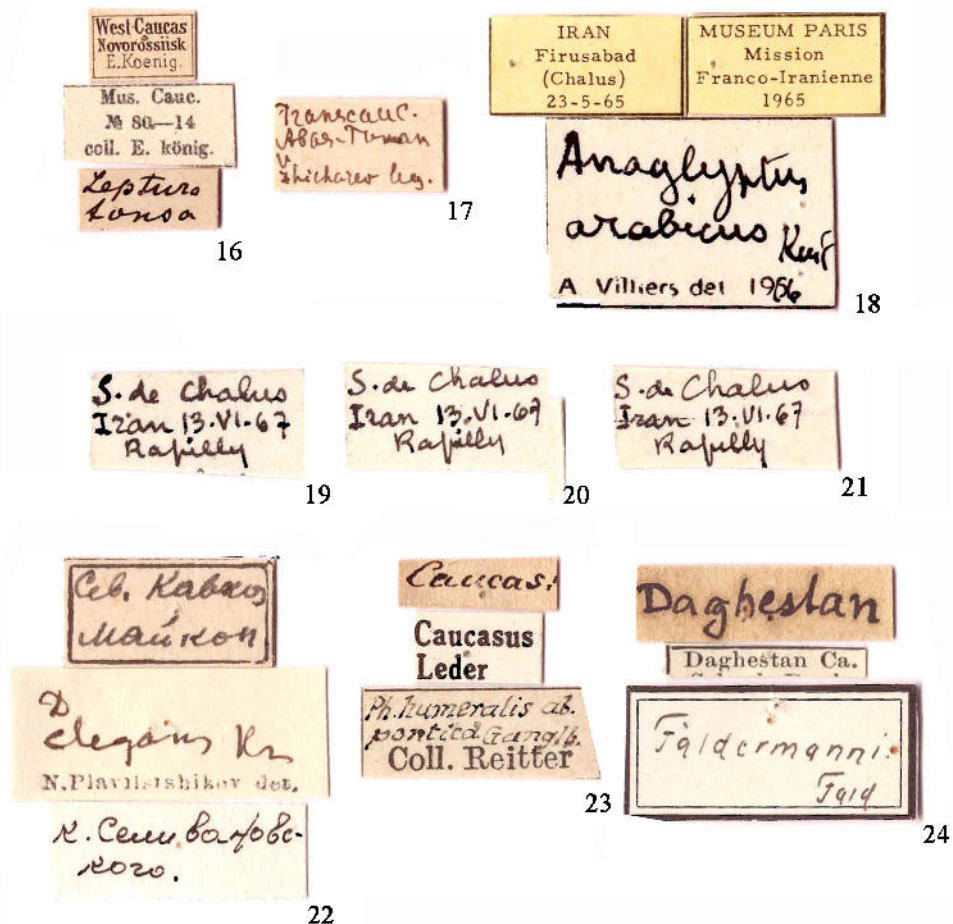 West-Caucas
Novorossiisk
E.Koenig.
Mus. Cauc.
№ 80—14
coll. E. könig.
Leptura
tonsa
16
Transcauc.
Abas-Tuman
leg.
17
IRAN
Firusabad
(Chalus)
23-5-65
MUSEUM PARIS
Mission
Franco-Iranienne
1965
Anaglyptus
arabicus
A Villiers det 1966
18
S. de Chalus
Iran 13.VI.67
Rapilly
19
S. de Chalus
Iran 13.VI.67
Rapilly
20
S. de Chalus
Iran 13.VI.67
Rapilly
21
Сев. Кавказ
Майкоп
D
elegans Kr
N.Plavilstshikov det.
к.
кого.
22
Caucas.
Caucasus
Leder
Ph. humeralis ab.
pontica Ganglb.
Coll. Reitter
23
Daghestan
Daghestan Ca.
Faldermanni.
Fald
24